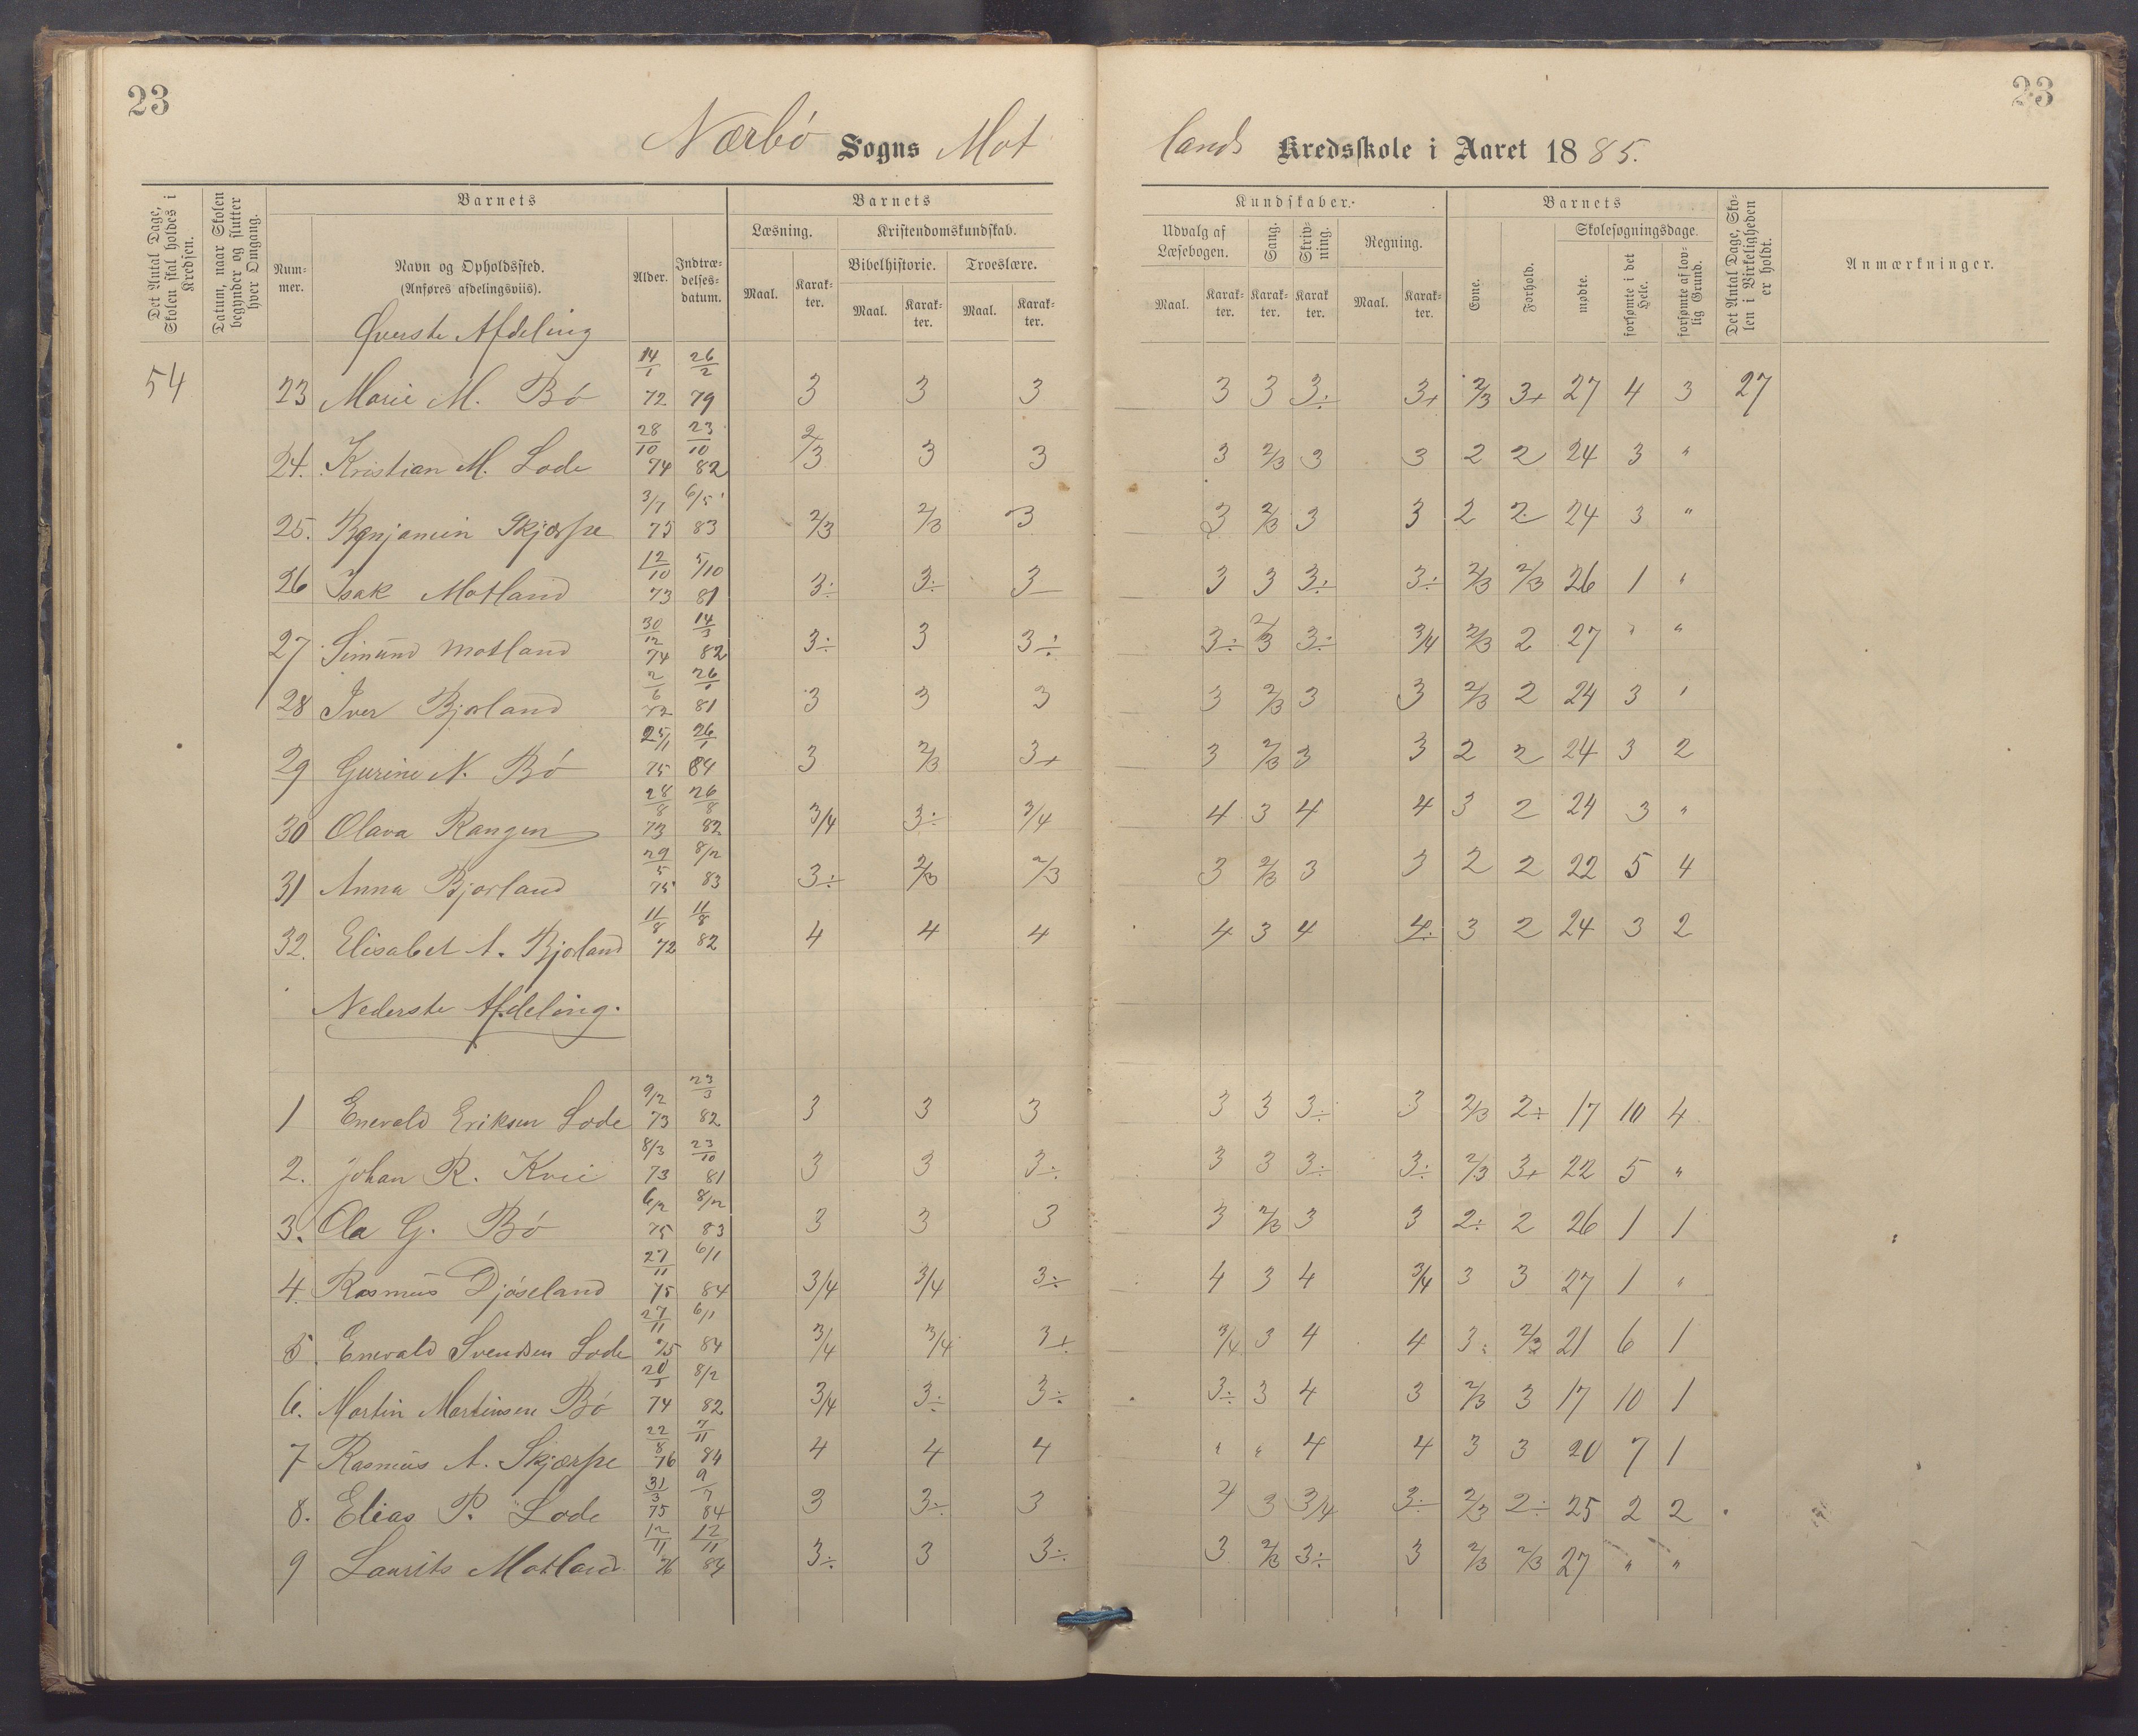 23
23
Nærbö Sogns Mot
lands Kredsskole i Aaret 1885.
Det Antal Dage, Skolen skal holdes i Kredsen.
Datum, naar Skolen begynder og slutter hver Omgang.
Barnets
Barnets
Kundskaber.
Barnets
Det Antal Dage, Skolen i Virkeligheden er holdt.
Anmærkninger.
Nummer.
Navn og Opholdssted.
(Anføres afdelingsviis).
Alder.
Indtrædelsesdatum.
Læsning.
Kristendomskundskab.
Bibelhistorie.
Troeslære.
Maal.
Karakter.
Maal.
Karakter.
Maal.
Karakter.
Udvalg af Læsebogen.
Sang.
Skrivning.
Regning.
Maal.
Karakter.
Karakter.
Karakter.
Maal.
Karakter.
Evne.
Forhold.
Skolesøgningsdage.
mødte.
forsømte i det Hele.
forsømte af lovlig Grund.
Øverste Afdeling
54 23 Marie M. Bö 14/1 72 26/2 79 3 3 3 3 3 3÷ 3+ 2/3 3+ 27 4 3 27
24. Kristian M. Lode 28/10 74 23/10 82 2/3 3 3 3 2/3 3 3 2 2 24 3 "
25. Benjamin Skjærpe 3/7 75 6/5 83 2/3 2/3 3 3 2/3 3 3 2 2 24 3 "
26 Isak Motland 12/10 73 5/10 81 3÷ 3÷ 3- 3 3 3÷ 3÷ 2/3 2/3 26 1 "
27 Simund Motland 30/12 74 14/3 82 3÷ 3 3÷ 3÷ 2/3 3÷ 3/4 2/3 2 27 " "
28 Iver Bjorland 2/6 72 26/1 81 3 3 3 3 2/3 3 3 2/3 2 24 3 "
29 Gurine N. Bö 25/1 75 26/1 84 3 2/3 3+ 3 2/3 3 3 2 2 24 3 2
30 Olava Rangen 28/8 73 26/8 82 3/4 3÷ 3/4 4 3 4 4 3 2 24 3 "
31 Anna Bjorland 29/5 75 8/2 83 3÷ 2/3 2/3 3 2/3 3 3 2 2 22 5 4
32. Elisabet A. Bjorland 11/8 72 11/8 82 4 4 4 4 3 4 4÷ 3 2 24 3 2
Nederste Afdeling.
1 Enevald Eriksen Lode 9/2 73 23/3 82 3 3 3 3 3 3÷ 3 2/3 2÷ 17 10 4
2. Johan R. Kvie 8/3 73 23/10 81 3 3 3÷ 3 3 3÷ 3÷ 2/3 3+ 22 5 "
3. Ola G. Bö 6/2 75 8/2 83 3 3 3 3 2/3 3 3 2÷ 2 26 1 1
4. Rasmus Djöseland 27/11 75 6/1 84 3/4 3/4 3÷ 4 3 4 3/4 3 3 27 1 "
5. Enevald Svendsen Lode 27/11 75 6/1 84 3/4 3/4 3÷ 3/4 3 4 4 3÷ 2/3 21 6 1
6. Martin Martinsen Bö 74 8/2 82 3/4 3÷ 3÷ 3÷ 3 4 3 2/3 3 17 10 1
7 Rasmus A. Skjærpe 22/8 76 7/11 84 4 4 4 " " 4 4 3 3 20 7 1
8. Elias P. Lode 31/3 75 9/7 84 3 3÷ 3 4 3 3/4 3÷ 2/3 2÷ 25 2 2
9 Laurits Motland 12/11 76 12/11 84 3÷ 3 3÷ 3 2/3 3÷ 3 2/3 2/3 27 " "